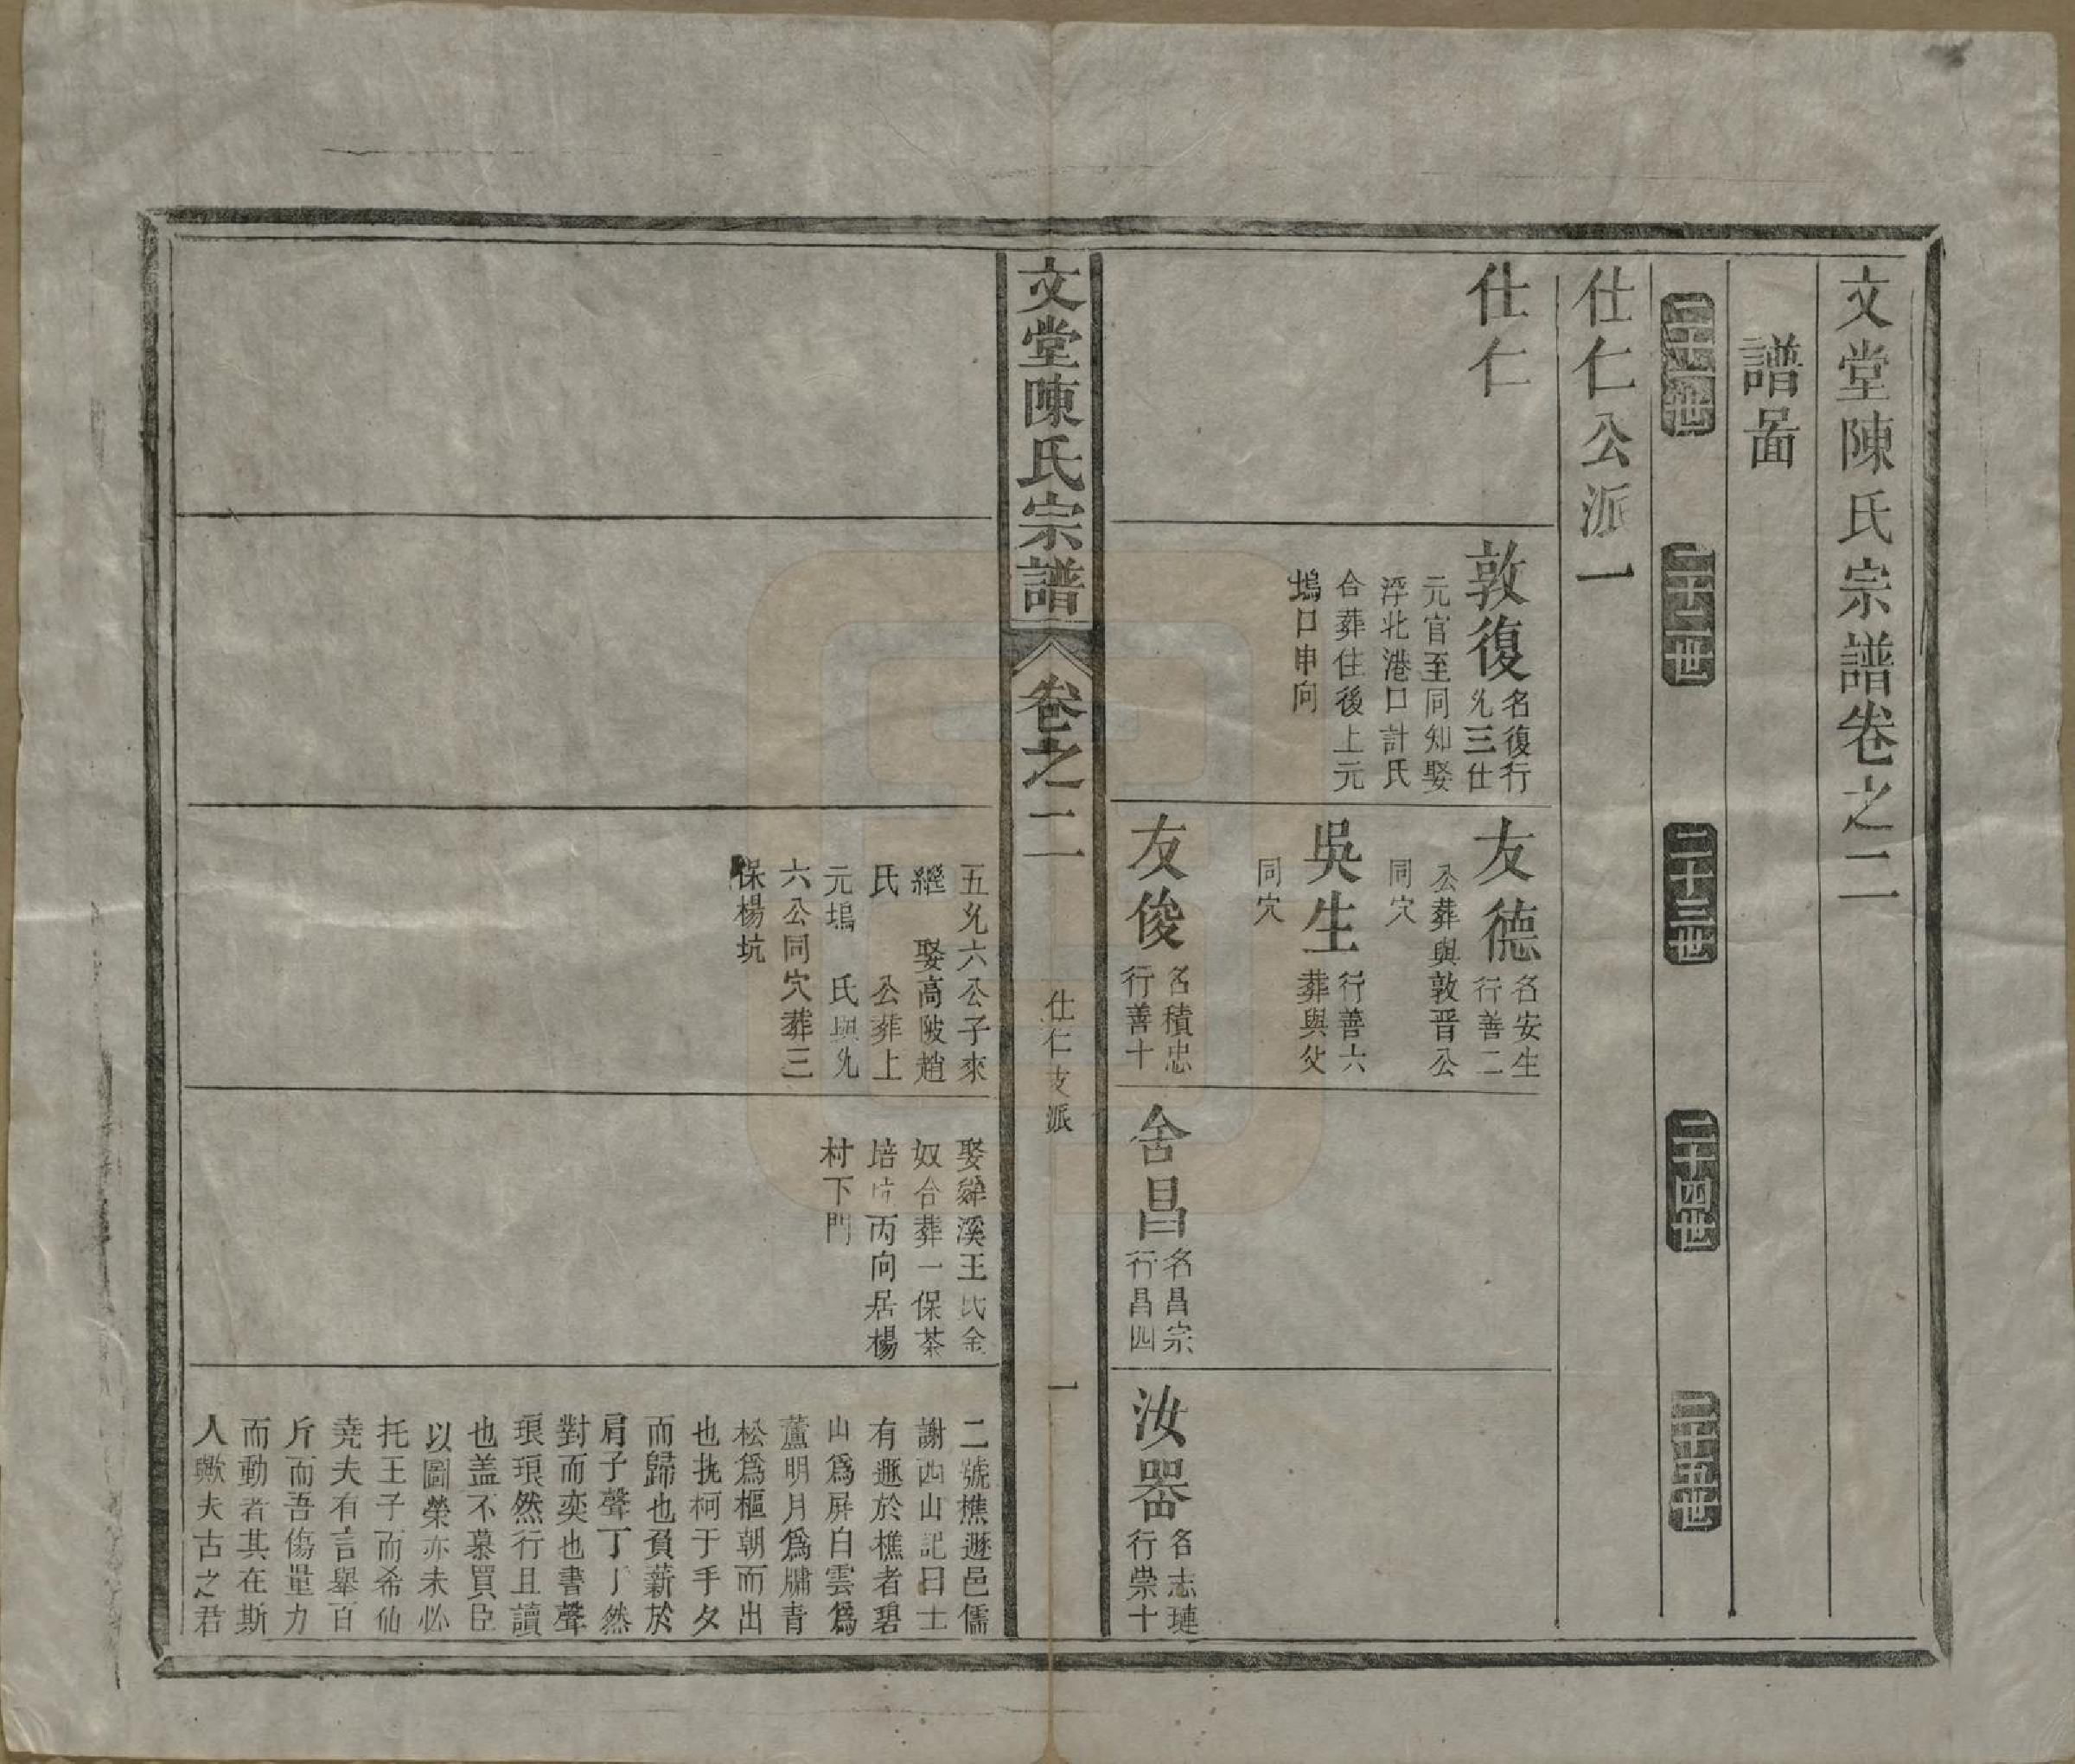 文堂陳氏宗譜卷之二
譜啚
二十一世
二十二世
二十三世
二十四世
二十五世
仕仁公派一
仕仁
敦復
名復行
允三仕
元官至同知娶
浮北港口計氏
合葬住後上元
塢口申向
友德
名安生
行善二
公葬與敦晋公
同穴
吳生
行善六
葬與父
同穴
友俊
名積忠
行善十
舍昌
名昌宗
行昌四
汝器
名志璉
行崇十
文堂陳氏宗譜
卷之二
仕仁支派
一
五允六公子來
繼 娶高陂趙
氏 公葬上
元塢 氏與允
六公同穴葬三
保楊坑
娶 溪王氏金
奴合葬一保茶
培 丙向居楊
村下門
二號樵遯邑儒
謝西山記曰士
有遯於樵者碧
山爲屏白雲爲
蘆明月爲牖青
松爲樞朝而出
也挑柯于手夕
而歸也負薪於
肩子聲丁丁然
對而奕也書聲
琅琅然行且讀
也盖不慕買臣
以圖榮亦未必
托王子而希仙
堯夫有言舉百
斤而吾傷量力
而動者其在斯
人歟夫古之君